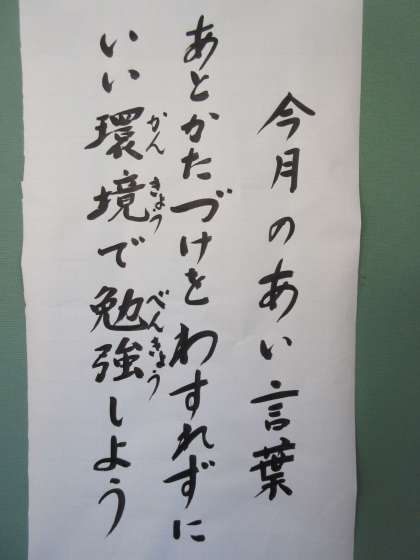 今月のあい言葉
あとかたづけをわすれずに
いい環境で勉強しよう
かんきょう
べんきょう